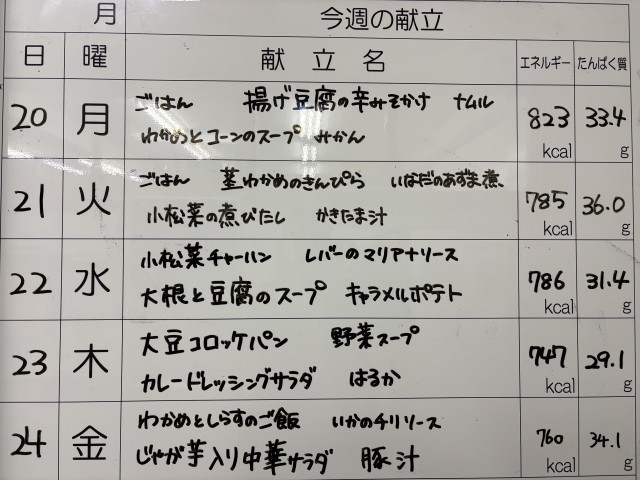 月 今週の献立
日 曜 献立名 エネルギー たんぱく質
20 月 ごはん 揚げ豆腐の辛みそかけ ナムル 823 33.4
わかめとコーンのスープ みかん kcal g
21 火 ごはん 茎わかめのきんぴら いなだのあずま煮、 785 36.0
小松菜の煮びたし かきたま汁 kcal g
22 水 小松菜チャーハン レバーのマリアナソース 786 31.4
大根と豆腐のスープ キャラメルポテト kcal g
23 木 大豆コロッケパン 野菜スープ 747 29.1
カレードレッシングサラダ はるか kcal g
24 金 わかめとしらすのご飯 いかのチリソース 760 34.1
じゃが芋入り中華サラダ 豚汁 kcal g